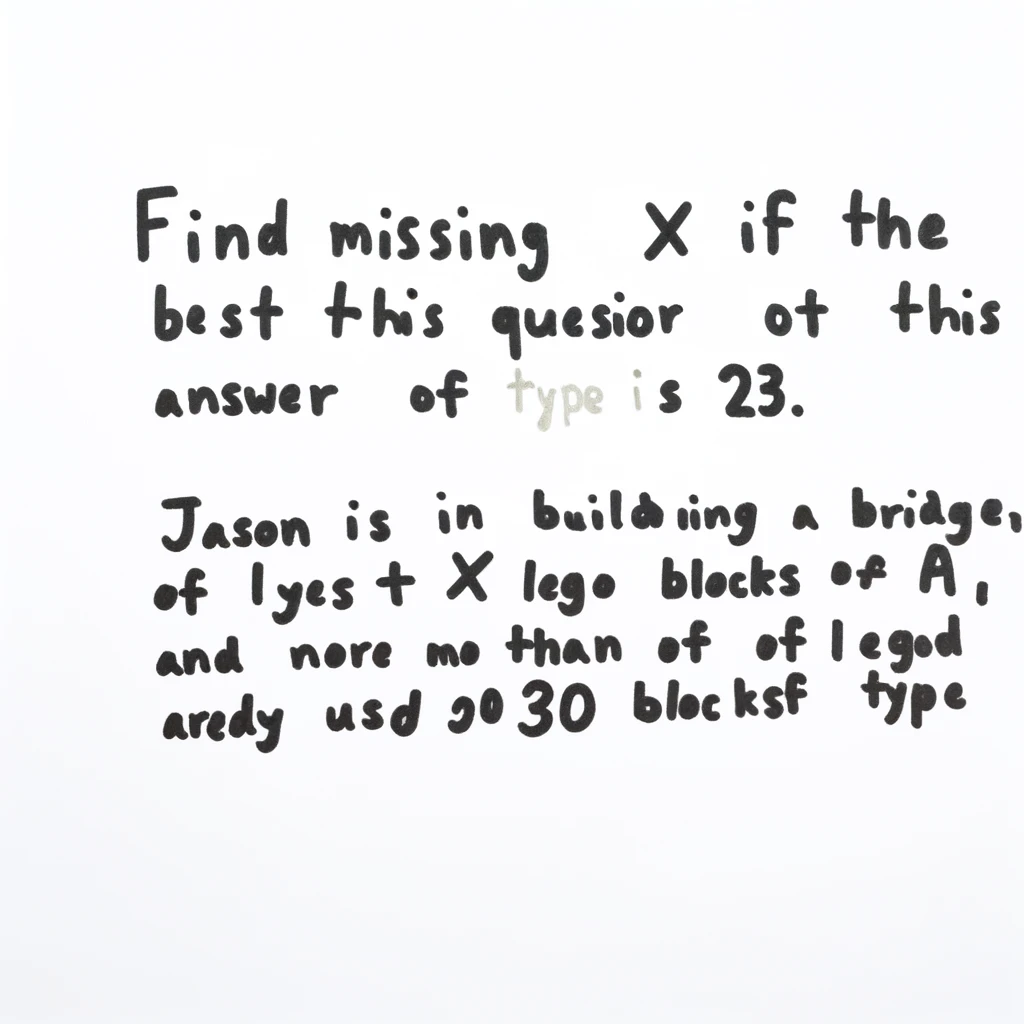 Find missing X if the
best this quesior ot this
answer of type is 23.
Jason is in building a bridge,
of lyest X lego blocks of A,
and nore mo than of of legod
aredy usd 30 blocksf type